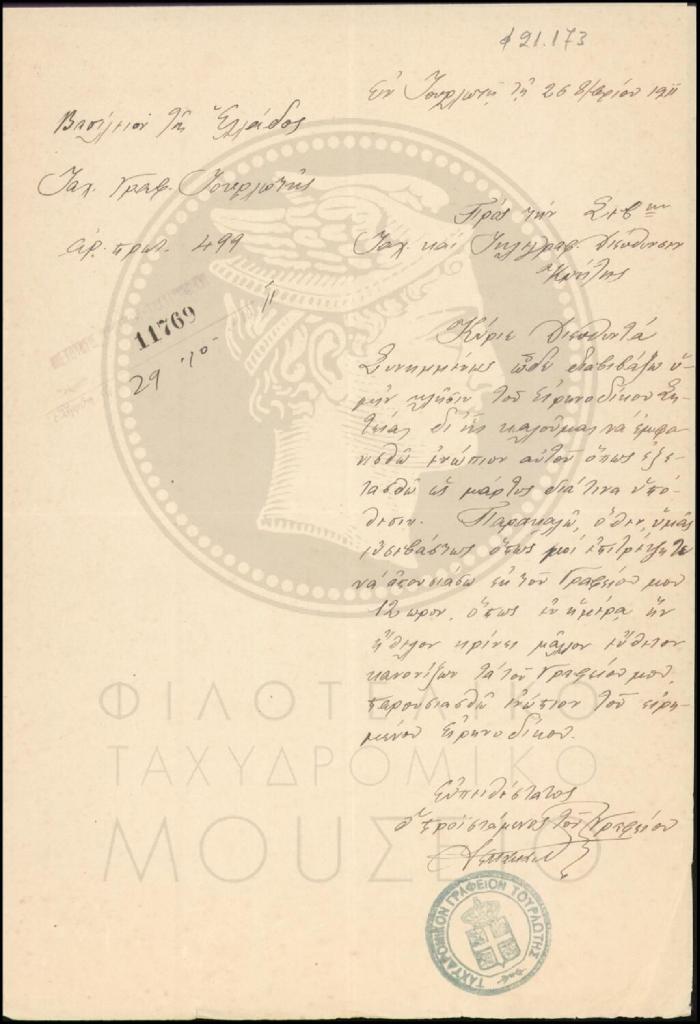 φ 21.173
Ἐν Τουρλωτῇ τῇ 26 8/βρίου 1911
Βασίλειον τῆς Ἑλλάδος
Ταχ. Γραφ. Τουρλωτῆς
Ἀρ. πρωτ. 499
Πρὸς τὴν Σεβην
Ταχ. καὶ Τηλεγραφ. Διεύθυνσιν
Κρήτης
11769
29 10 11
Κύριε Διευθυντά
Συνημμένως ὧδε διαβιβάζω ὑ-
μῖν κλῆσιν τοῦ Εἰρηνοδίκου Ση-
τείας δι' ἧς καλοῦμαι νὰ ἐμφα-
νισθῶ ἐνώπιον αὐτοῦ ὅπως ἐξε-
τασθῶ ὡς μάρτυς διά τινα ὑπό-
θεσιν. Παρακαλῶ, ὅθεν, ὑμᾶς
εὐσεβάστως ὅπως μοὶ ἐπιτρέψητε
νὰ ἀπουσιάσω ἐκ τοῦ Γραφείου μου
12 ωρον, ὅπως ἐν ἡμέρᾳ ἣν
ἤθελον κρίνει μᾶλλον εὔθετον
κανονίζων τὰ τοῦ Γραφείου μου,
παρουσιασθῶ ἐνώπιον τοῦ εἰρη-
μένου Εἰρηνοδίκου.
Εὐπειθέστατος
Ὁ Προϊστάμενος τοῦ Γραφείου
ΤΑΧΥΔΡΟΜΙΚΟΝ ΓΡΑΦΕΙΟΝ ΤΟΥΡΛΩΤΗΣ
ΦΙΛΟΤΕΛΙΚΟ
ΤΑΧΥΔΡΟΜΙΚΟ
ΜΟΥΣΕΙΟ